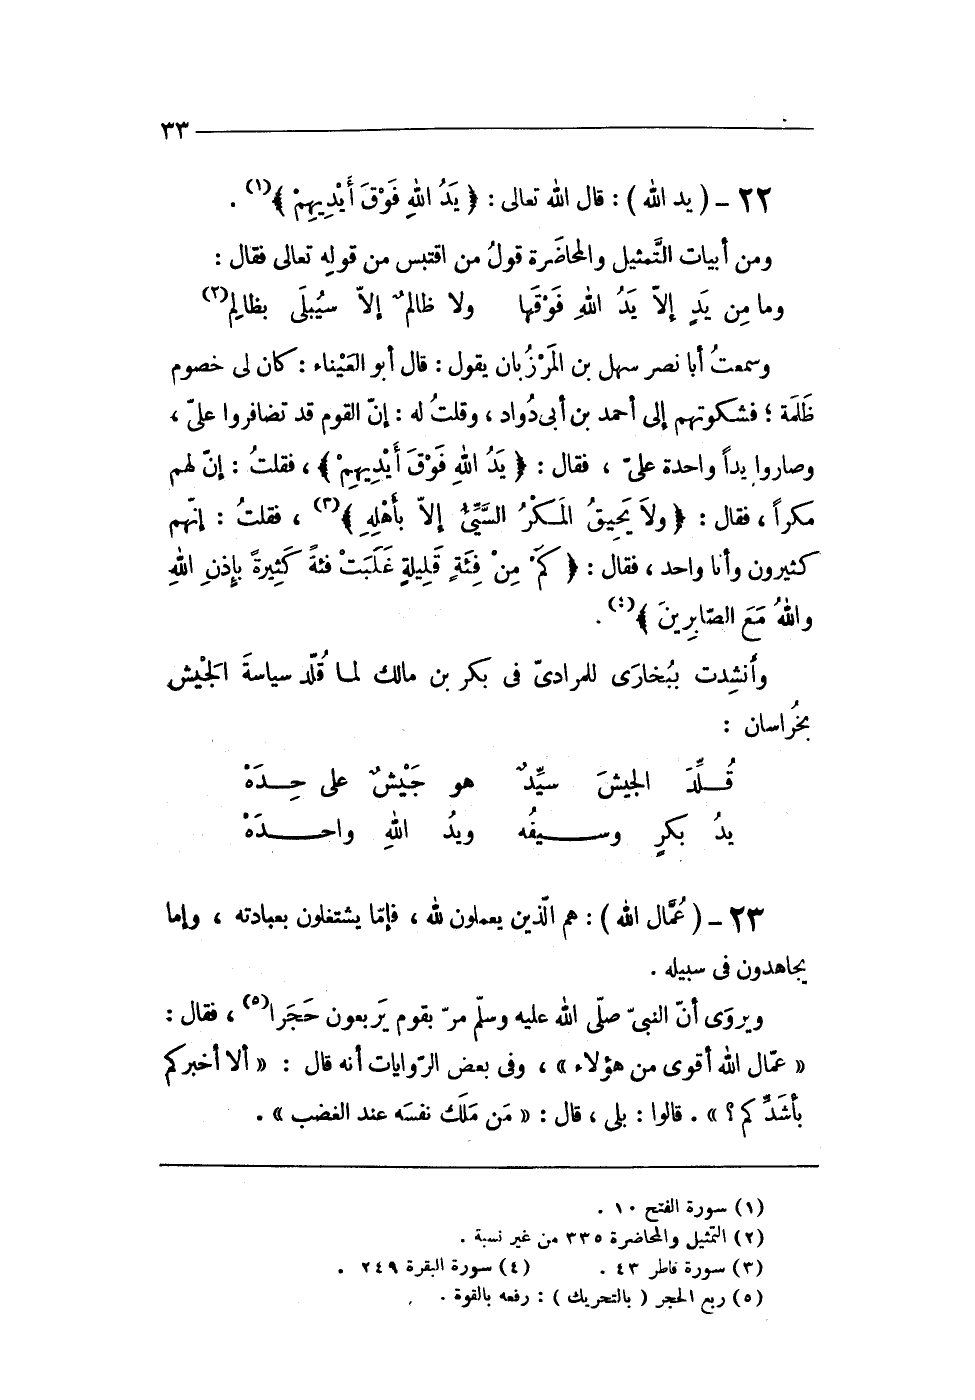 ٣٣
٢٢ – ( يد الله ) : قال الله تعالى : ﴿ يَدُ اللهِ فَوْقَ أَيْدِيهِمْ ﴾(١) .
ومن أبيات التَّمثيل والمحاضَرة قولُ من اقتبس من قوله تعالى فقال :
وما مِن يَدٍ إلاّ يَدُ اللهِ فَوْقَها    ولا ظالمٌ إلاّ سيُبلَى بظالِمِ(٢)
وسمعتُ أبا نصر سهل بن المَرْزُبان يقول : قال أبو العَيْناء : كان لى خصوم
ظَلَمَة ؛ فشكوتهم إلى أحمد بن أبى دُواد ، وقلتُ له : إنّ القوم قد تضافروا علىّ ،
وصاروا يداً واحدة علىّ ، فقال : ﴿ يَدُ اللهِ فَوْقَ أَيْدِيهِمْ ﴾ ، فقلتُ : إنّ لهم
مكراً ، فقال : ﴿ ولاَ يَحِيقُ المَكْرُ السَّيِّئُ إلاّ بأَهْلِهِ ﴾(٣) ، فقلتُ : إنّهم
كثيرون وأنا واحد ، فقال : ﴿ كَمْ مِنْ فِئَةٍ قَلِيلةٍ غَلَبَتْ فئةً كَثِيرةً بإذنِ اللهِ
واللهُ مَعَ الصّابِرِينَ ﴾(٤) .
وأُنشِدت ببُخارَى للمرادىّ فى بكر بن مالك لما قُلّد سياسةَ الجَيْش
بخُراسان :
قُـلِّدَ الجيشَ سيِّدٌ    هو جَيْشٌ على حِـدَهْ
يدُ بكرٍ وســيفُه    ويدُ اللهِ واحـــدَهْ
٢٣ – ( عُمَّال الله ) : هم الّذين يعملون لله ، فإمّا يشتغلون بعبادته ، وإما
يجاهدون فى سبيله .
ويروَى أنّ النبىّ صلّى الله عليه وسلّم مرّ بقوم يَربعون حَجَرا(٥) ، فقال :
« عمّال الله أقوى من هؤلاء » ، وفى بعض الرّوايات أنه قال : « ألا أخبركم
بأشَدِّكم ؟ » . قالوا : بلى ، قال : « مَن مَلَك نفسَه عند الغضب » .
(١) سورة الفتح ١٠ .
(٢) التمثيل والمحاضرة ٣٣٥ من غير نسبة .
(٣) سورة فاطر ٤٣ .    (٤) سورة البقرة ٢٤٩ .
(٥) ربع الحجر ( بالتحريك ) : رفعه بالقوة .